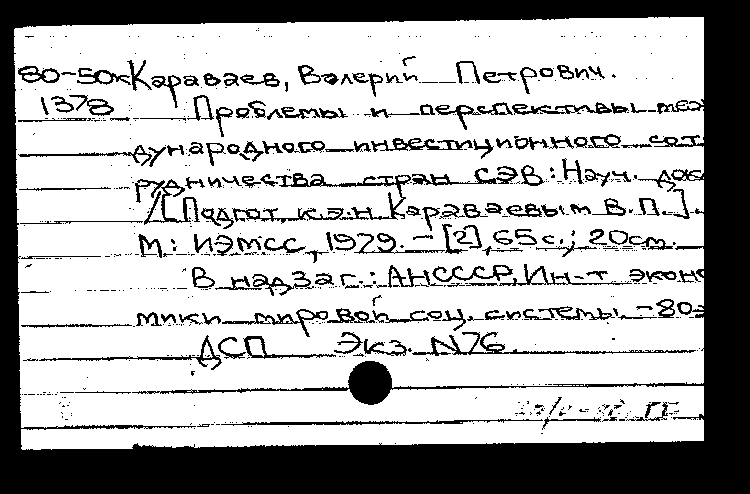 80-50к Караваев, Валерий Петрович.
1378 Проблемы и перспективы меж
дународного инвестиционного сот
рудничества стран СЭВ: Науч. док
/[Подгот. к.э.н. Караваевым В.П.].
М.: ИЭМСС, 1979. - [2], 65 с.; 20см.
В надзаг.: АН СССР, Ин-т эконо
мики мировой соц. системы. - 80э
ДСП Экз. N76.